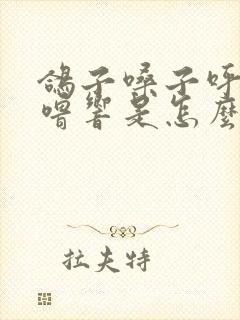 鴿子嗓子呼
嚕響是怎麼
拉夫特